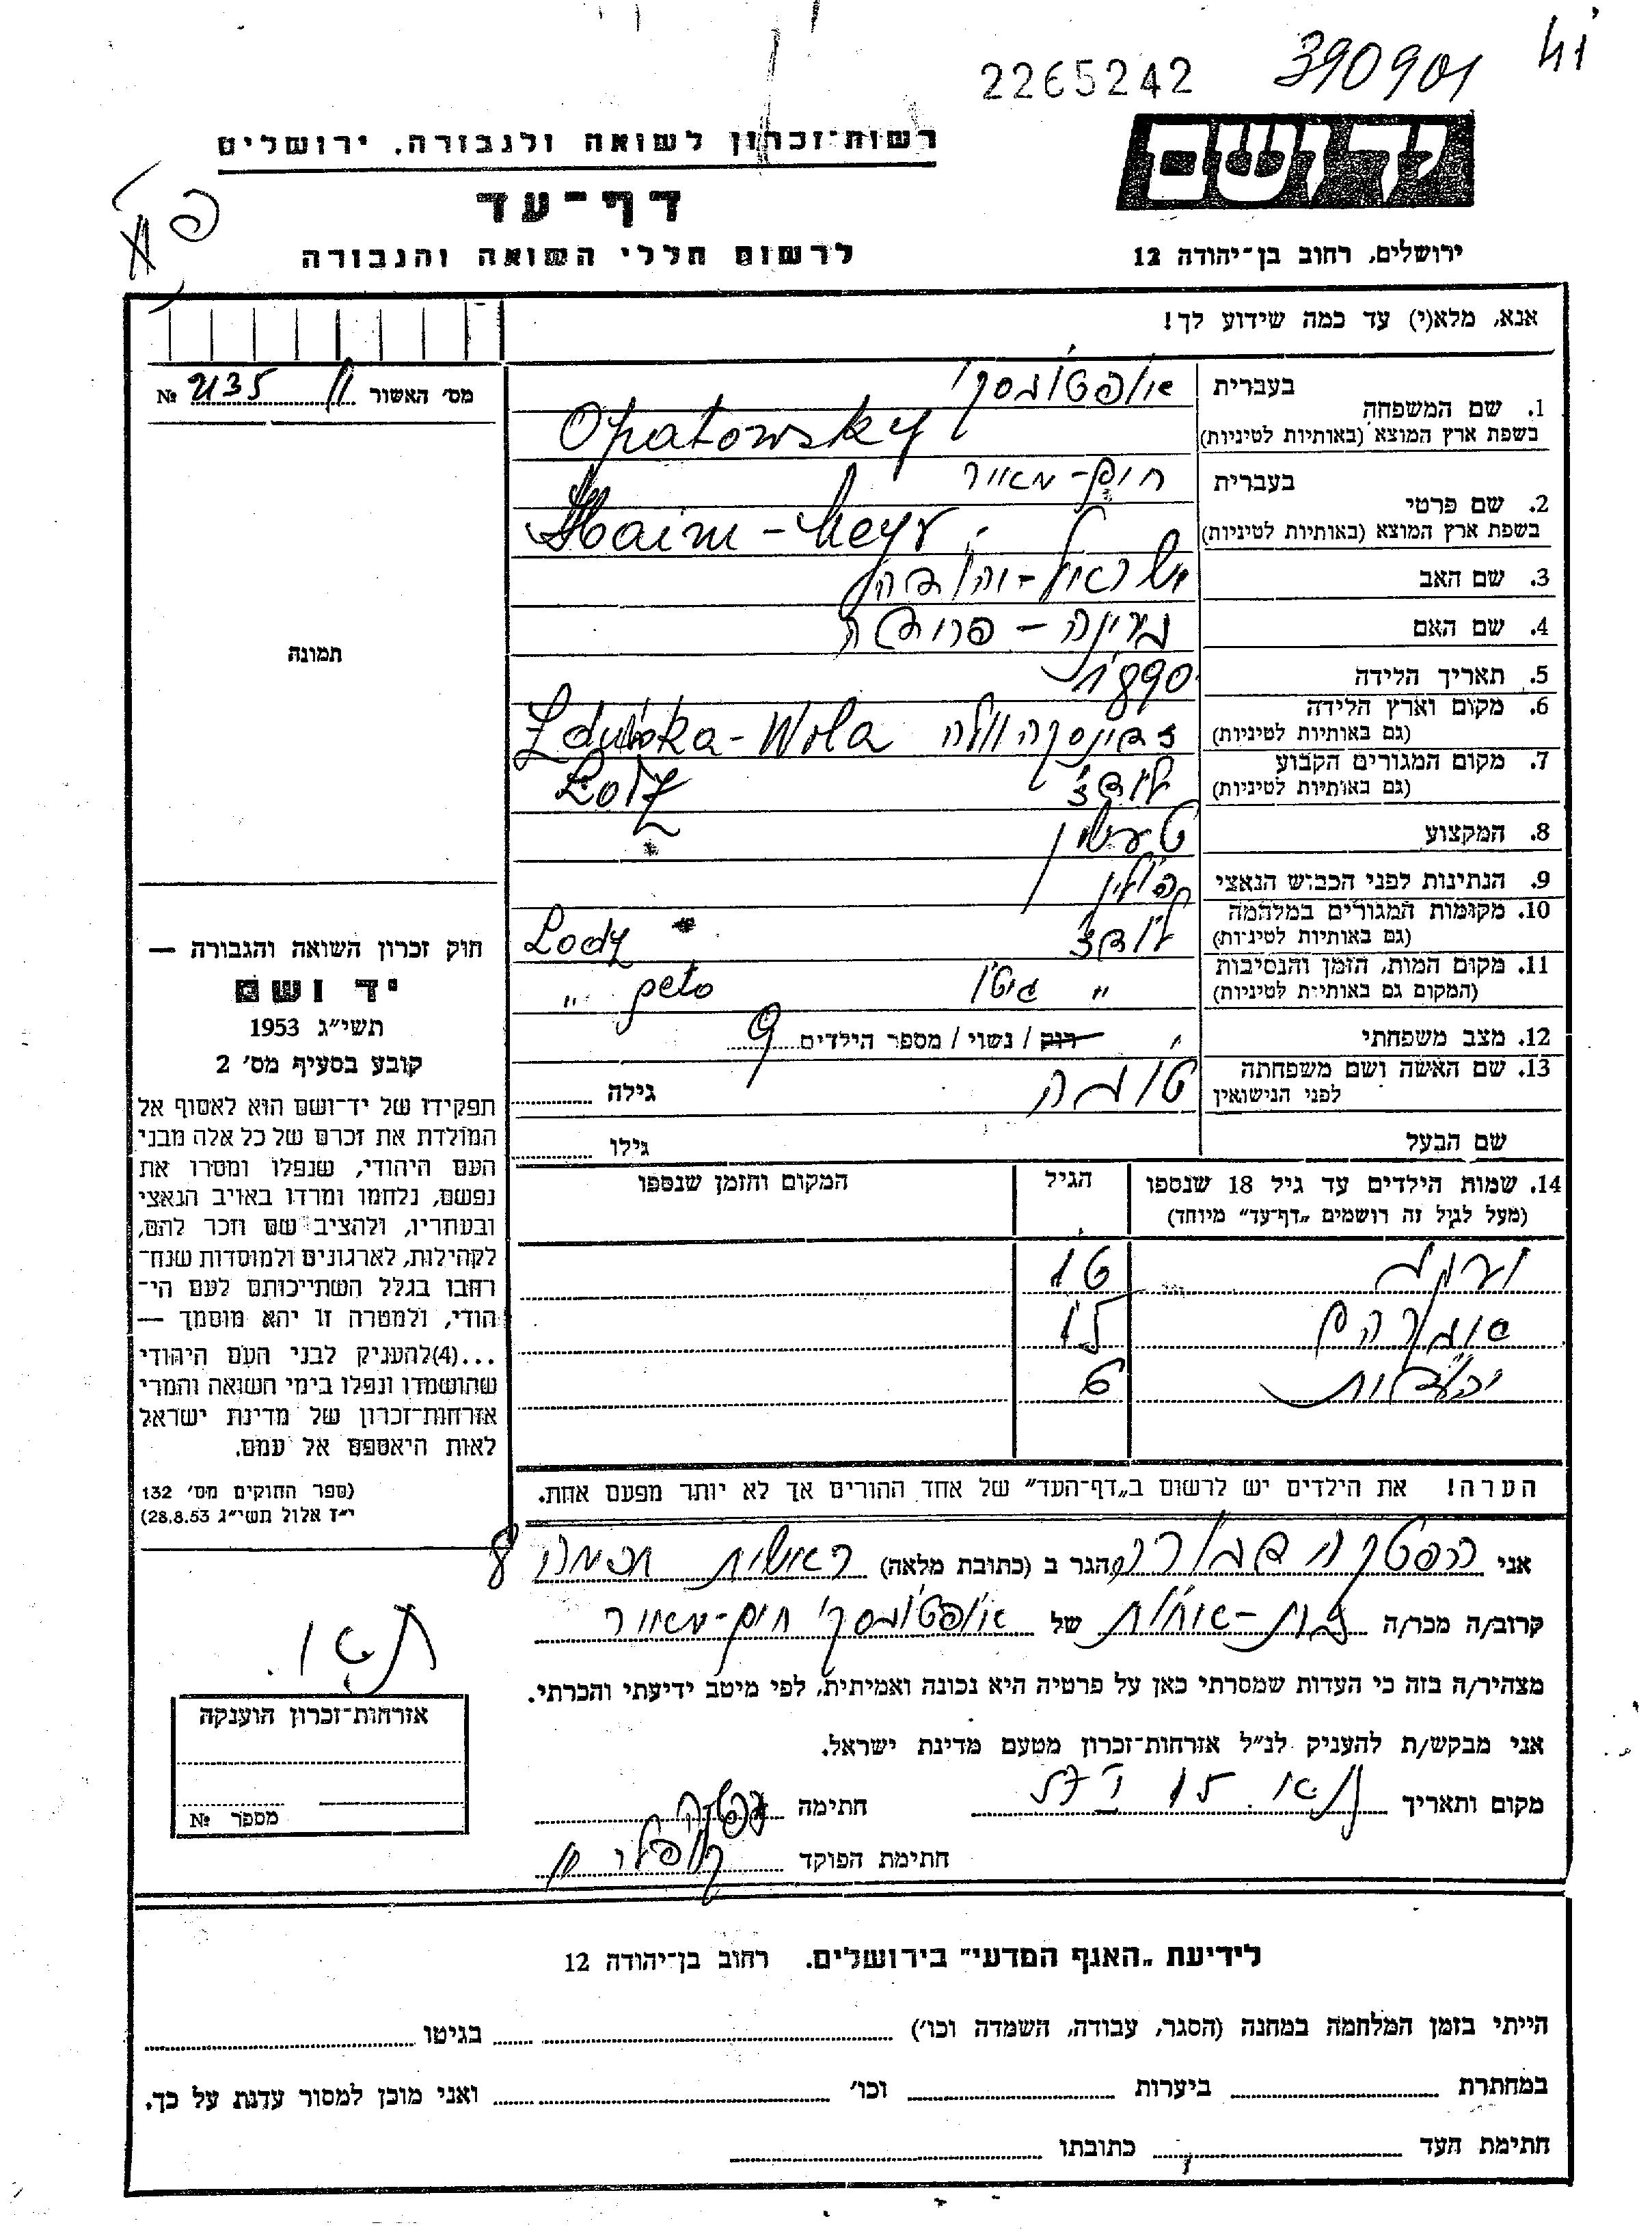 2265242 390901
רשות־זכרון לשואה ולגבורה, ירושלים
יד ושם
דף־עד
לרשום חללי השואה והגבורה
ירושלים, רחוב בן־יהודה 12
אנא, מלא(י) עד כמה שידוע לך!
מס׳ האשור № 2135
1. שם המשפחה בעברית אופטובסקי
בשפת ארץ המוצא (באותיות לטיניות) Opatowsky
2. שם פרטי בעברית חיים-מאיר
בשפת ארץ המוצא (באותיות לטיניות) Haim-Meyr
3. שם האב ישראל-יהודה
4. שם האם פרומה
5. תאריך הלידה 1890
6. מקום וארץ הלידה
(גם באותיות לטיניות) זדונסקה וולה Zduńska-Wola
7. מקום המגורים הקבוע
(גם באותיות לטיניות) לודז׳ Lodz
8. המקצוע
9. הנתינות לפני הכבוש הנאצי פולין
10. מקומות המגורים במלחמה
(גם באותיות לטיניות) לודז׳ Lodz
11. מקום המות, הזמן והנסיבות
(המקום גם באותיות לטיניות) " גיטו geto "
12. מצב משפחתי רוק / נשוי / מספר הילדים 9
13. שם האשה ושם משפחתה
לפני הנישואין טובה גילה
שם הבעל גילו
14. שמות הילדים עד גיל 18 שנספו הגיל המקום והזמן שנספו
(מעל לגיל זה רושמים „דף־עד״ מיוחד)
יעקב 16
אברהם 15
יהודית 6
הערה! את הילדים יש לרשום ב„דף־העד״ של אחד ההורים אך לא יותר מפעם אחת.
תמונה
חוק זכרון השואה והגבורה —
יד ושם
תשי״ג 1953
קובע בסעיף מס׳ 2
תפקידו של יד־ושם הוא לאסוף אל
המולדת את זכרם של כל אלה מבני
העם היהודי, שנפלו ומסרו את
נפשם, נלחמו ומרדו באויב הנאצי
ובעוזריו, ולהציב שם וזכר להם,
לקהילות, לארגונים ולמוסדות שנח־
רבו בגלל השתייכותם לעם הי־
הודי, ולמטרה זו יהא מוסמך —
...(4)להעניק לבני העם היהודי
שהושמדו ונפלו בימי השואה והמרי
אזרחות־זכרון של מדינת ישראל
לאות היאספם אל עמם.
(ספר החוקים מס׳ 132
י״ז אלול תשי״ג 28.8.53)
אני הגר ב (כתובת מלאה) ראשית חכמה 8
קרוב/ה מכר/ה בת-אחות של אופטובסקי חיים-מאיר
מצהיר/ה בזה כי העדות שמסרתי כאן על פרטיה היא נכונה ואמיתית, לפי מיטב ידיעתי והכרתי.
אני מבקש/ת להעניק לנ״ל אזרחות־זכרון מטעם מדינת ישראל.
מקום ותאריך חתימה
חתימת הפוקד
אזרחות־זכרון הוענקה
מספר №
לידיעת „האגף המדעי״ בירושלים. רחוב בן־יהודה 12
הייתי בזמן המלחמה במחנה (הסגר, עבודה, השמדה וכו׳) בגיטו
במחתרת ביערות וכו׳ ואני מוכן למסור עדות על כך.
חתימת העד כתובתו